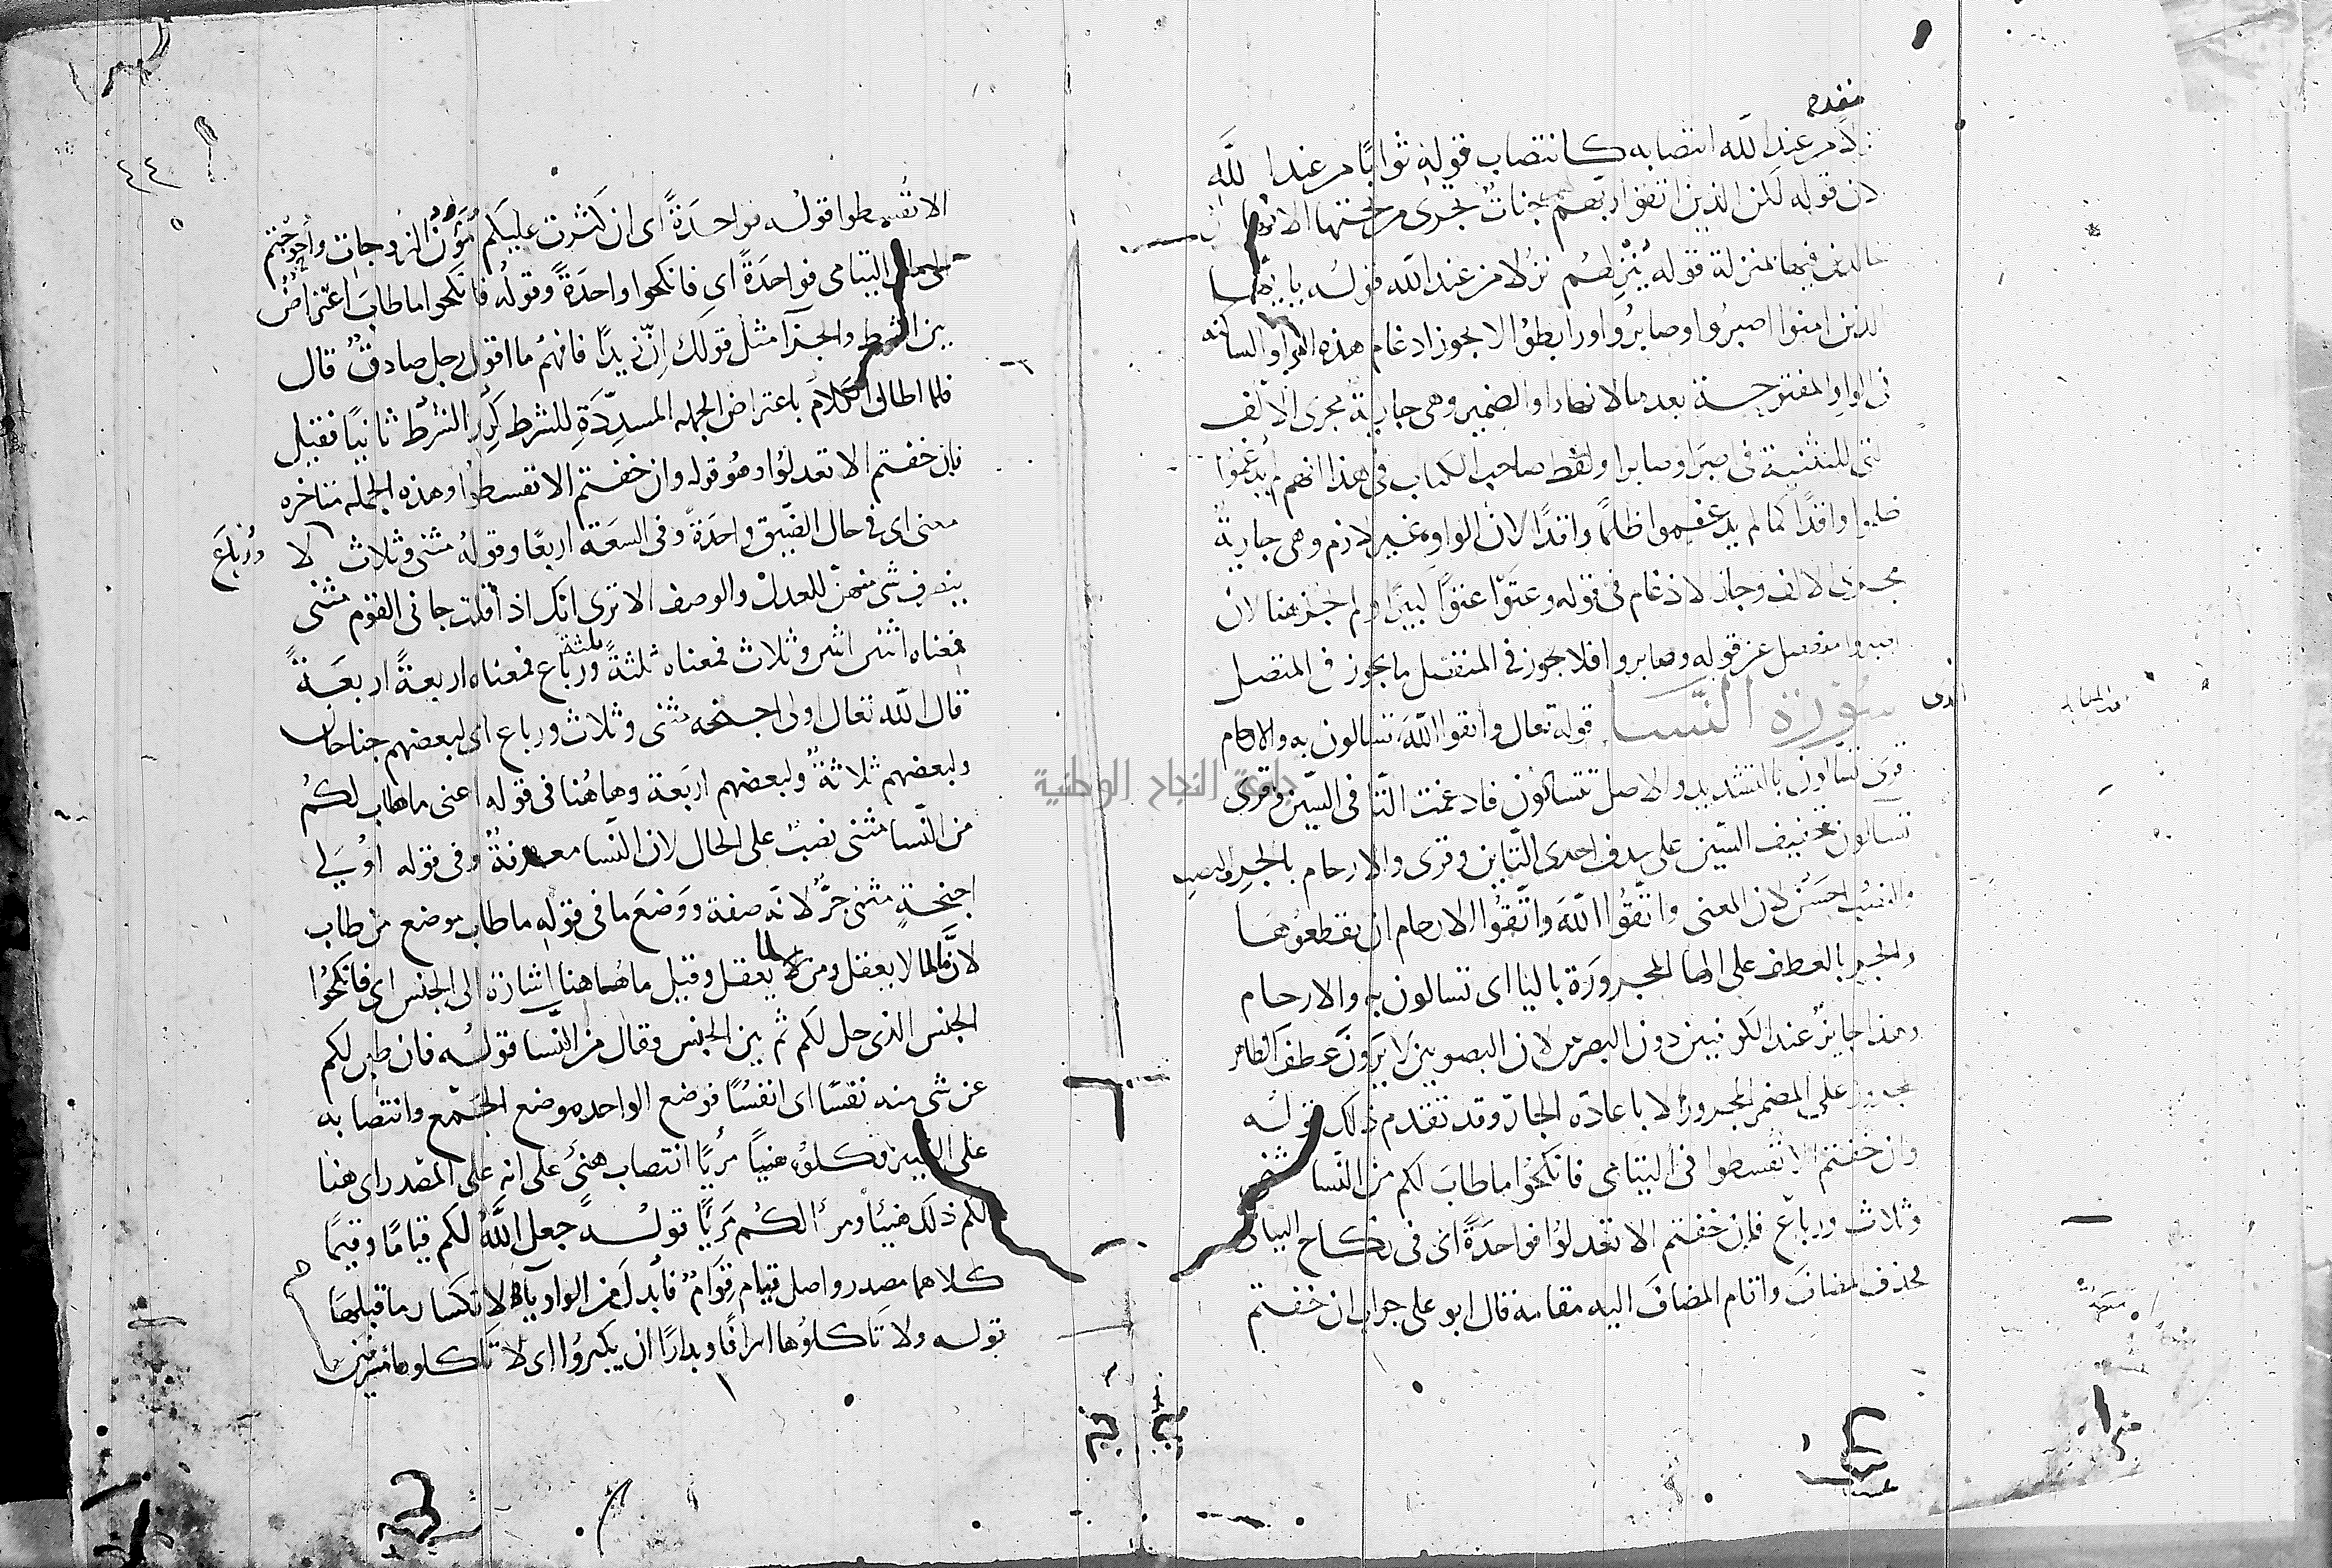 نزلا من عند الله انتصابه كانتصاب قوله ثوابا من عند الله
لان قوله لكن الذين اتقوا ربهم لهم جنات تجرى من تحتها الانهار
خالدين فيها بمنزلة قوله ينزلهم نزلا من عند الله قوله يا ايها
الذين امنوا اصبروا وصابروا ورابطوا لا يجوز ادغام هذه الواو الساكنه
فى الواو المفتوحة بعدها لانها واو الضمير وهى جارية مجرى الالف
التى للتثنية فى صبرا وصابرا ولفظ صاحب الكتاب فى هذا انهم لم يدغموا
ظلموا واقدًا كما لم يدغموا ظلما واقدًا لان الواو غير لازم وهى جارية
مجرى الالف وجاز الادغام فى قوله وعتوا عتوًا كبيرًا ولم يجز هنا لان
اصبروا منفصل عن قوله وصابروا فلا يجوز فى المنفصل ما يجوز فى المتصل
سورة النسا قوله تعالى واتقوا الله تسالون به والارحام الذى
قرى تسالون بالتشديد والاصل تتسالون فادغمت التا فى السين وقرى
تسالون بتخفيف السين على حذف احدى التاين وقرى والارحام بالجر والنصب
والنصب احسن لان المعنى واتقوا الله واتقوا الارحام ان تقطعوها
والجر بالعطف على الها المجرورة بالبا اى تسالون به والارحام
وهذا جايز عند الكوفيين دون البصريين لان البصريين لا يرون عطف الظاهر
المجرور على المضمر المجرور الا باعادة الجار وقد تقدم ذلك قوله
وان خفتم الا تقسطوا فى اليتامى فانكحوا ما طاب لكم من النسا مثنى
وثلاث ورباع فان خفتم الا تعدلوا فواحدةً اى فى نكاح اليتامى
فحذف المضاف واقام المضاف اليه مقامه قال ابو على جواب ان خفتم
٤٤
الا تقسطوا قوله فواحدةً اى ان كثرت عليكم مؤن الزوجات وأحوجتم
الى مال اليتامى فواحدةً اى فانكحوا واحدةً وقوله فانكحوا ما طاب اعتراض
بين الشرط والجزآ مثل قولك ان زيدًا فافهم ما اقول رجل صادق قال
فلما اطال الكلام باعتراض الجمله المسددة للشرط كرر الشرط ثانيًا فقيل
فان خفتم الا تعدلوا وهو قوله وان خفتم الا تقسطوا وهذه الجمله متاخره
معنى اى فى حال الضيق واحدة وفى السعة اربعًا وقوله مثنى وثلاث ورباع لا
ينصرف شى منهن للعدل والوصف الا ترى انك اذا قلت جانى القوم مثنى
فمعناه اثنين اثنين وثلاث فمعناه ثلثةً ثلثة ورباع فمعناه اربعةً اربعةً
قال الله تعالى اولى اجنحه مثنى وثلاث ورباع اى لبعضهم جناحان
ولبعضهم ثلاثة ولبعضهم اربعة وهاهنا فى قوله اعنى ما طاب لكم
من النسا مثنى نصب على الحال لان النسا معرفة وفى قوله اولى
اجنحةٍ مثنى جرٌّ لانه صفة ووضع ما فى قوله ما طاب موضع من طاب
لان ما لما لا يعقل ومن لما يعقل وقيل ما هاهنا اشارة الى الجنس اى فانكحوا
الجنس الذى حل لكم ثم بين الجنس وقال من النسا قوله فان طبن لكم
عن شى منه نفسًا اى انفسًا فوضع الواحد موضع الجمع وانتصابه
على التمييز فكلوه هنيًا مريًا انتصاب هنى على انه على المصدر اى هنا
لكم ذلك هنيئًا ومرأ لكم مريًا قوله جعل الله لكم قيامًا وقيمًا
كلاهما مصدر واصل قيام قوام فابدل من الواو يا لانكسار ما قبلها
قوله ولا تاكلوها اسرافًا وبدارًا ان يكبروا اى لا تاكلوها مسرفين
جامعة النجاح الوطنية